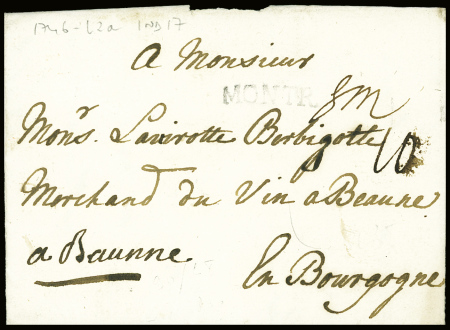 A Monsieur
MONTR
Mon.r Lavirotte Berbigotte
10
Marchand du Vin a Beaune
a Baunne
En Bourgogne